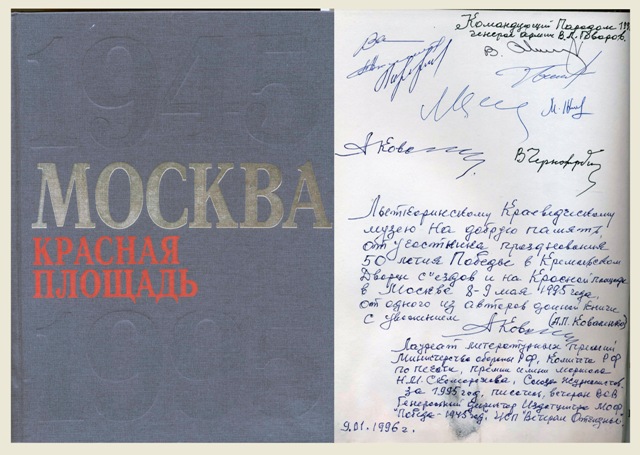 1945
МОСКВА
КРАСНАЯ
ПЛОЩАДЬ
Командующий Парадом
генерал армии В.Л. Говоров.
В Черномырдин
А Кова
краеведческому
музею на добрую память
от участника празднования
50 летия Победы в Кремлевском
Дворце съездов и на Красной площади
в Москве 8-9 мая 1995 года,
от одного из авторов данной книги
с уважением А Кова (А.П. Коваленко)
Лауреат литературных премий
Министерства обороны РФ, Комитета РФ
по печати, премии имени маршала
Н.М. Скоморохова, Союза журналистов
за 1995 год, писатель, ветеран ВОВ
Генеральный директор Издатцентра МОФ
"Победа-1945 год", "Ветеран Отчизны".
9.01.1996 г.